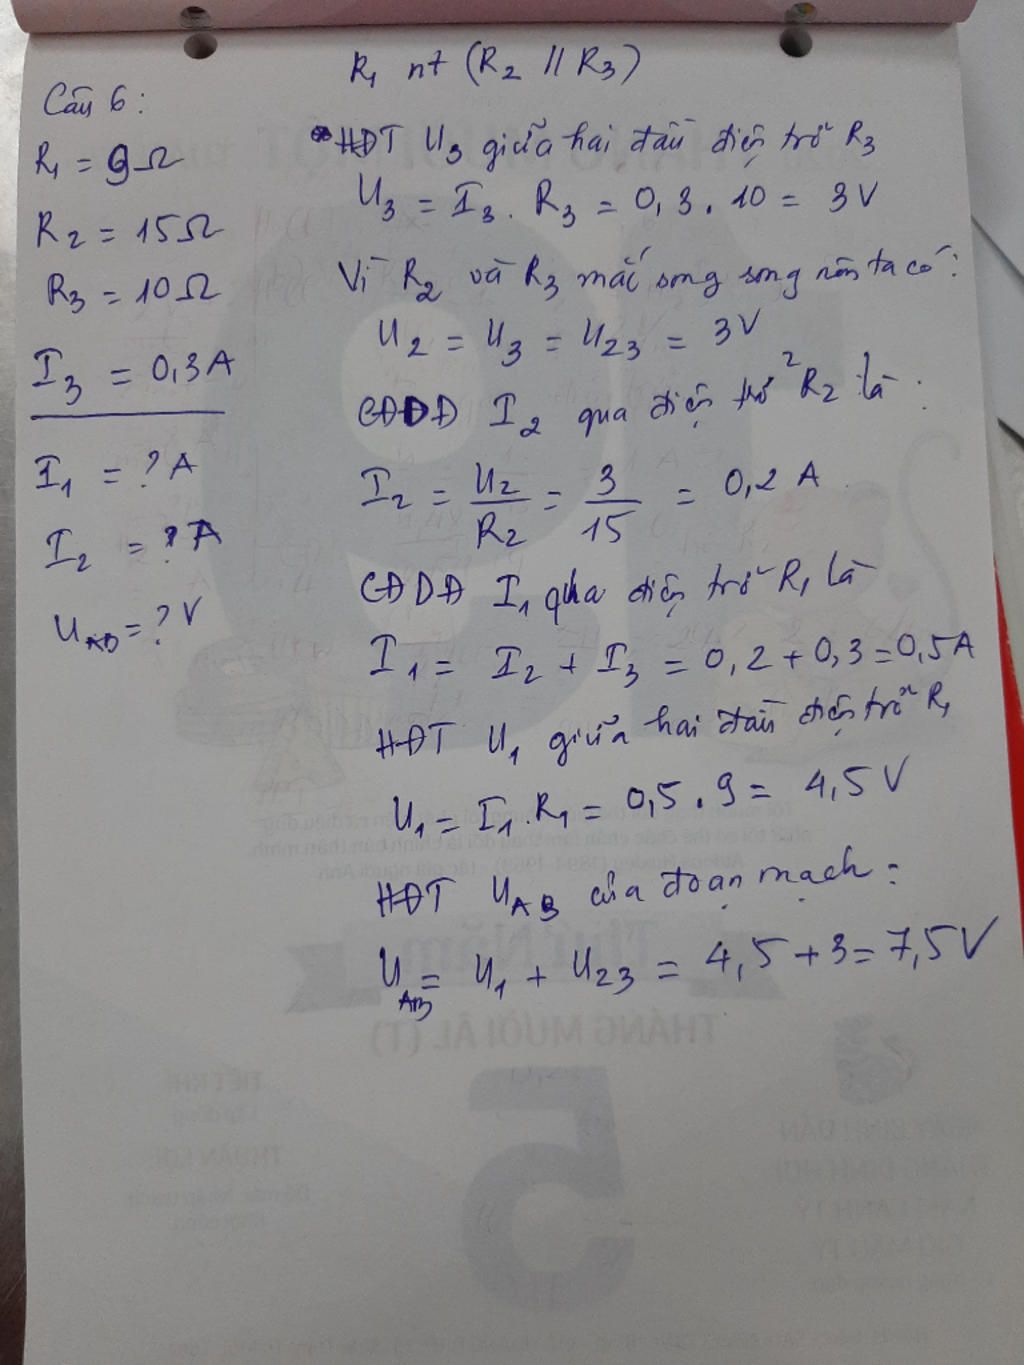 R₁ nt (R₂ // R₃)
Câu 6:
R₁ = 9Ω
R₂ = 15Ω
R₃ = 10Ω
I₃ = 0,3A
I₁ = ? A
I₂ = ? A
U_AB = ? V
* HĐT U₃ giữa hai đầu điện trở R₃
U₃ = I₃ . R₃ = 0,3 . 10 = 3V
Vì R₂ và R₃ mắc song song nên ta có:
U₂ = U₃ = U₂₃ = 3V
CĐDĐ I₂ qua điện trở R₂ là:
I₂ = U₂/R₂ = 3/15 = 0,2 A
CĐDĐ I₁ qua điện trở R₁ là
I₁ = I₂ + I₃ = 0,2 + 0,3 = 0,5A
HĐT U₁ giữa hai đầu điện trở R₁
U₁ = I₁ . R₁ = 0,5 . 9 = 4,5 V
HĐT U_AB của đoạn mạch:
U_AB = U₁ + U₂₃ = 4,5 + 3 = 7,5V
Thứ Năm
THÁNG MƯỜI ÂL (T)
5